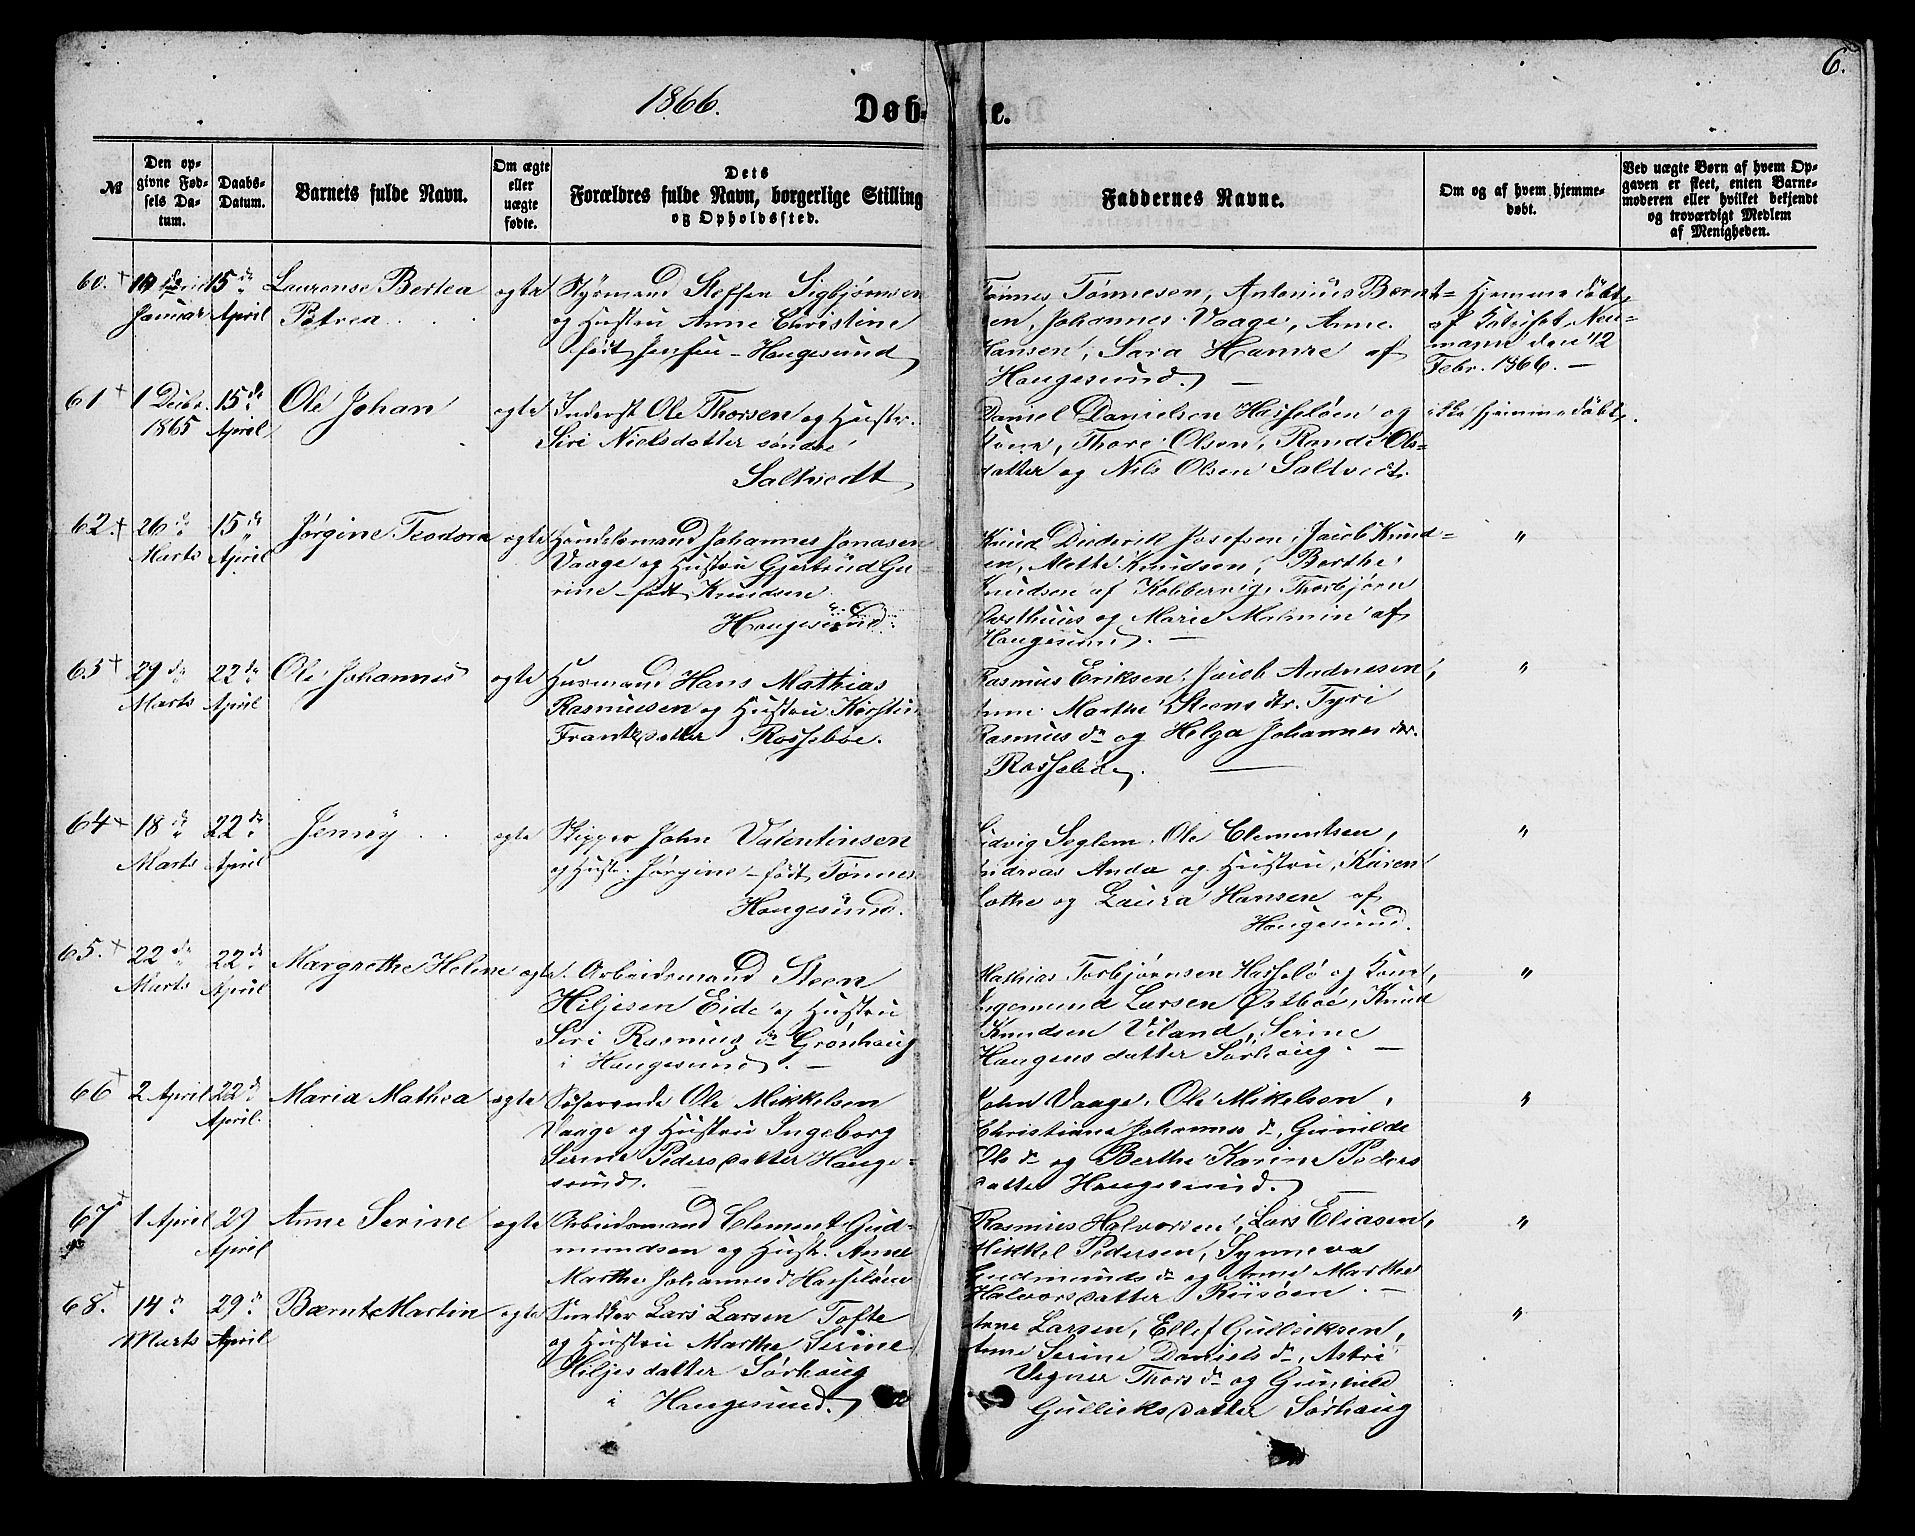 6.
1866.
Døb- te.
№
Den op-
givne Fød-
sels Da-
tum.
Daabs-
Datum.
Barnets fulde Navn.
Om ægte
eller
uægte
fødte.
Dets
Forældres fulde Navn, borgerlige Stilling
og Opholdssted.
Faddernes Navne.
Om og af hvem hjemme-
døbt.
Ved uægte Børn af hvem Op-
gaven er skeet, enten Barne-
moderen eller hvilket bekjendt
og troværdigt Medlem
af Menigheden.
60. 15de Laurense Bertea ægte Styrmand Steffen Sigbjørnsen
Januar April Petrea og Hustru Anne Christine
født Jensen - Haugesund
Tønnes Tønnesen, Antonius Bernt-
sen, Johannes Vaage, Anne
Hansen, Sara Hamre af
Haugesund.
Hjemmedøbt
af Kateket Neu-
mann den 12
Febr. 1866.
61 1 Decbr. 15de Ole Johan ægte Inderst Ole Thorsen og Hustr.
1865 April Siri Nielsdatter søndre
Saltvedt
Daniel Danielsen Hasseløen og
Kone, Thore Olsen, Randi Ols-
datter og Nils Olsen Saltvedt.
ikke hjemmedøbt.
62. 26de 15de Jørgine Teodora ægte Handelsmand Johannes Jonasen
Marts April Vaage og Hustru Gjertrud Gu-
rine født Knudsen
Haugesund.
Knud Diderik Josefsen, Jacob Knud-
sen, Mette Knudsen, Berthe
Knudsen af Kobbervig, Thorbjørn
Posthuus og Marie Malmin af
Haugesund.
"
63 29de 22de Ole Johannes ægte Huusmand Hans Mathias
Marts April Rasmussen og Hustru Kirstine
Frantzdatter Rossebøe.
Rasmus Eriksen, Jacob Andresen,
Anne Marthe Steensdtr. Tyri
Rasmusdr og Helga Johannesdtr.
Rossebøe.
"
64 18de 22de Jenny ægte Skipper John Valentinsen
Marts April og Hustr. Jørgine født Tønnes
Haugesund.
Ludvig Seglem, Ole Clementsen,
Andreas Anda og Hustru, Karen
Lothe og Laura Hansen af
Haugesund.
"
65. 22de 22de Margrethe Heline ægte. Arbeidsmand Steen
Marts April Hiljesen Eide og Hustru
Siri Rasmusdr Grønhaug
i Haugesund.
Mathias Torbjørnsen Hasselø og Kone,
Ingemund Larsen Østbøe, Knud
Knudsen Viland, Serine
Haugensdatter Sørhaug.
"
66 2 April 22de Maria Mathea ægte Søfarende Ole Mikkelsen
April. Vaage og Hustru Ingeborg
Serine Pedersdatter Hauge-
sund.
John Vaage, Ole Mikelsen,
Christiane Johannesdr, Gunilde
Olsdr og Berthe Karine Peders
datter Haugesund.
"
67 1 April 29 Anne Serine ægte Arbeidsmand Clement Gud-
April mundsen og Hustr. Anne
Marthe Johannesdr Hasseløen
Rasmus Halvorsen, Lars Eliasen,
Mikkel Pedersen, Synneva
Gudmundsdr og Anne Marthe
Halvorsdatter Risøen.
"
68. 14de 29de Bærnt Martin ægte Snedker Lars Larsen Tofte
Marts April og Hustru Marthe Serine
Hiljesdatter Sørhaug
i Haugesund.
Arne Larsen, Ellef Gulleiksen,
Anne Serine Danielsdr, Astri
Thorsdr og Gunhild
Gullicksdatter Sørhaug
"